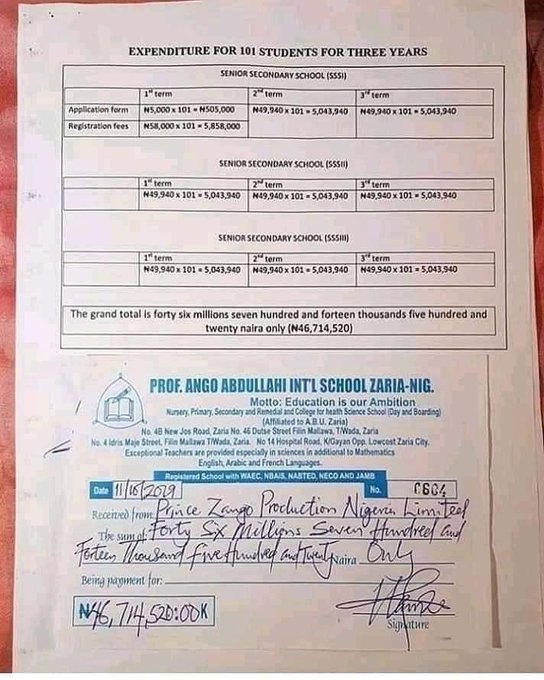 EXPENDITURE FOR 101 STUDENTS FOR THREE YEARS
SENIOR SECONDARY SCHOOL (SSSI)
1st term 2nd term 3rd term
Application form ₦5,000 x 101 = ₦505,000 ₦49,940 x 101 = 5,043,940 ₦49,940 x 101 = 5,043,940
Registration fees ₦58,000 x 101 = 5,858,000
SENIOR SECONDARY SCHOOL (SSSII)
1st term 2nd term 3rd term
₦49,940 x 101 = 5,043,940 ₦49,940 x 101 = 5,043,940 ₦49,940 x 101 = 5,043,940
SENIOR SECONDARY SCHOOL (SSSIII)
1st term 2nd term 3rd term
₦49,940 x 101 = 5,043,940 ₦49,940 x 101 = 5,043,940 ₦49,940 x 101 = 5,043,940
The grand total is forty six millions seven hundred and forteen thousands five hundred and
twenty naira only (₦46,714,520)
PROF. ANGO ABDULLAHI INT'L SCHOOL ZARIA-NIG.
Motto: Education is our Ambition
Nursery, Primary, Secondary and Remedial and College for health Science School (Day and Boarding)
(Affiliated to A.B.U. Zaria)
No. 4B New Jos Road, Zaria No. 46 Dutse Street Filin Mallawa, T/Wada, Zaria
No. 4 Idris Maje Street, Filin Mallawa T/Wada, Zaria. No 14 Hospital Road, K/Gayan Opp. Lowcost Zaria City.
Exceptional Teachers are provided especially in sciences in additional to Mathematics
English, Arabic and French Languages.
Registered School with WAEC, NBAIS, NABTED, NECO AND JAMB
Date 11/10/2019 No. 0604
Received from: Prince Zango Production Nigeria Limited
The sum of Forty Six Millions Seven Hundred and
Forteen Thousand five Hundred and Twenty Naira Only
Being payment for:
₦46,714,520:00K
Signature